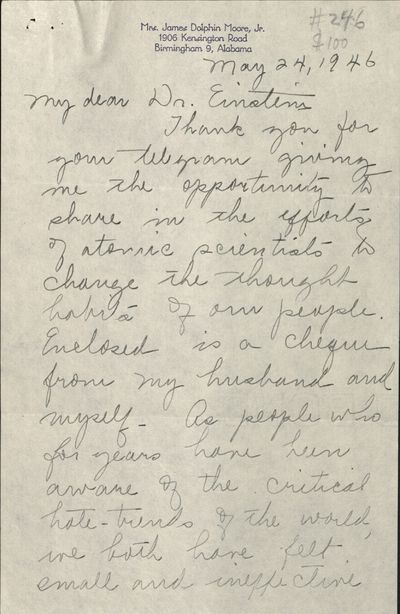 Mrs. James Dolphin Moore, Jr.
1906 Kensington Road
Birmingham 9, Alabama
#246
$100
May 24, 1946
My dear Dr. Einstein
Thank you for
your telegram giving
me the opportunity to
share in the efforts
of atomic scientists to
change the thought
habits of our people.
Enclosed is a cheque
from my husband and
myself - As people who
for years have been
aware of the critical
hate-trends of the world,
we both have felt
small and ineffective